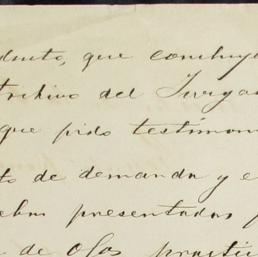 ducto, que concluye
Archivo del Juzga
que pido testimon
to de demanda y e
ebas presentadas p
de Ofas practic